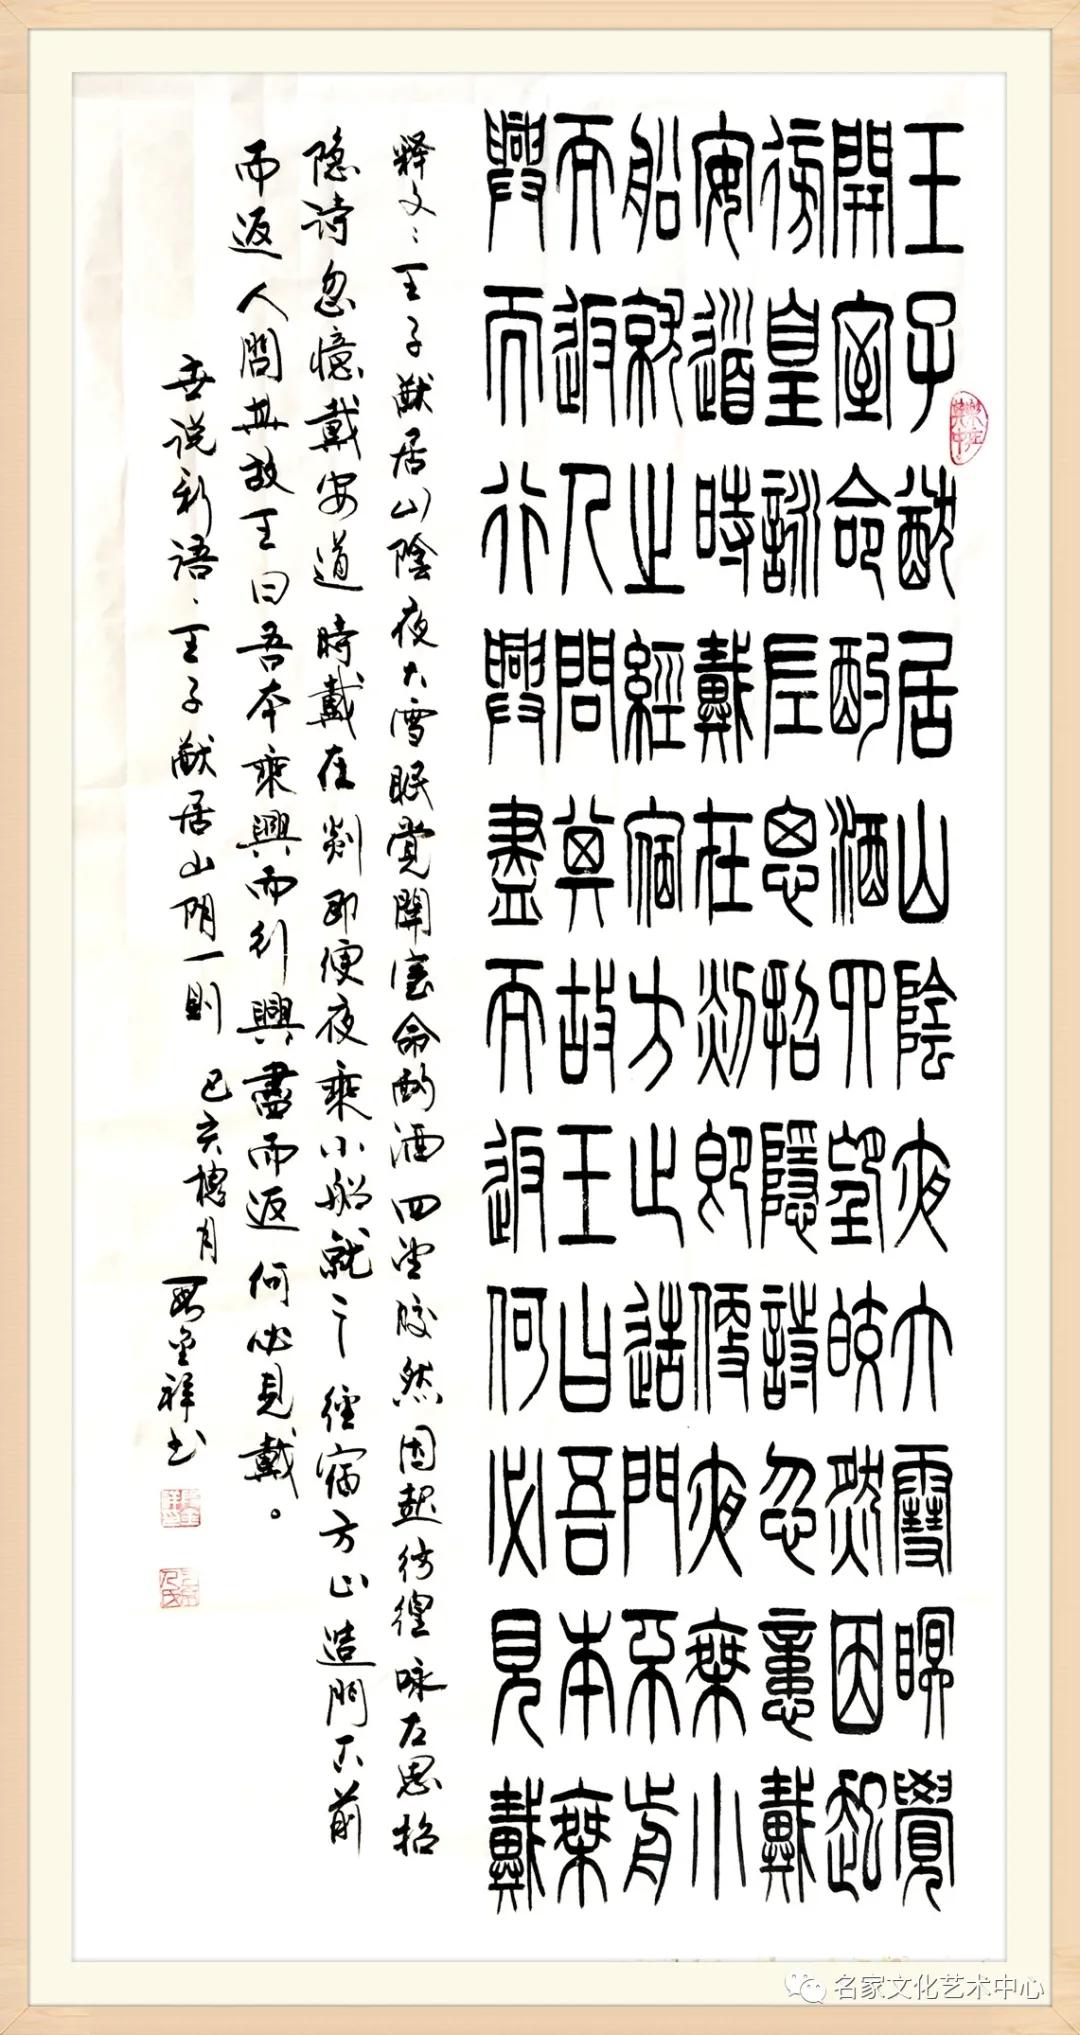 王子猷居山陰夜大雪眠覺
開室命酌酒四望皎然因起
彷皇詠左思招隱詩忽憶戴
安道時戴在剡即便夜乘小
船就之經宿方止造門不前
而返人問其故王曰吾本乘
興而行興盡而返何必見戴
释文:王子猷居山陰夜大雪眠覺開室命酌酒四望皎然因起彷徨咏左思招
隐诗忽憶戴安道時戴在剡即便夜乘小船就之經宿方止造門不前
而返人問其故王曰吾本乘興而行興盡而返何必見戴。
世说新语:王子猷居山阴一则 己亥月金祥书
名家文化艺术中心